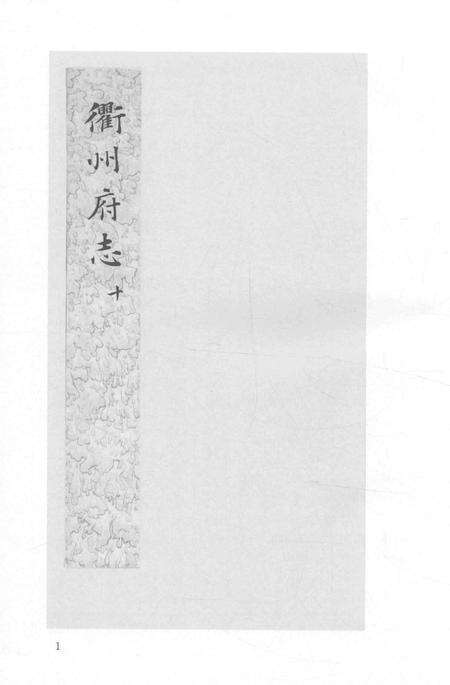 衢州府志
十
1